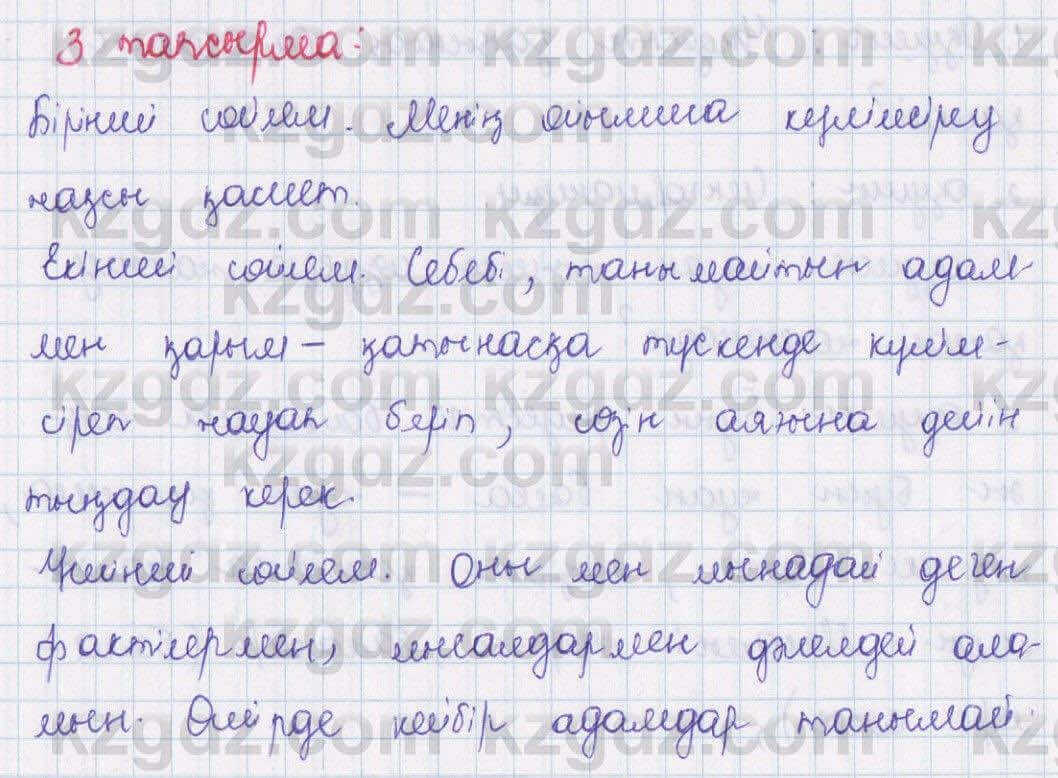 3 тапсырма:
Бірінші сөйлем. Менің ойымша күлімсіреу
жақсы қасиет.
Екінші сөйлем. Себебі, танымайтын адам-
мен қарым-қатынасқа түскенде күлім-
сіреп жауап беріп, сөзін аяғына дейін
тыңдау керек.
Үшінші сөйлем. Оны мен мынадай деген
фактілермен, мысалдармен дәлелдей ала-
мын. Өмірде кейбір адамдар танымай
kzgdz.com